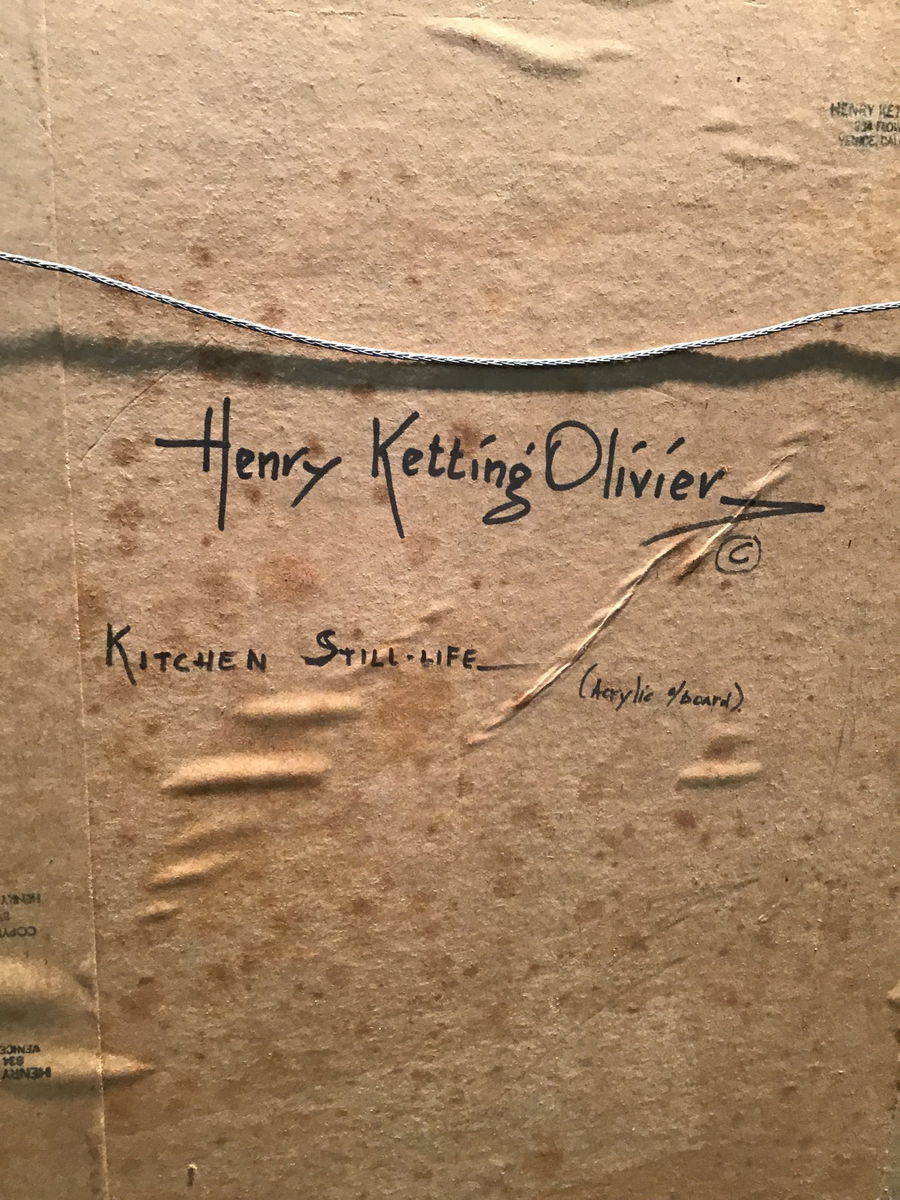 HENRY KET
834 FLOW
VENICE, CALI
Henry Ketting Olivier
©
KITCHEN STILL-LIFE
(Acrylic o/board).
HENRY
BY
COPY
VENICE
834
HENRY